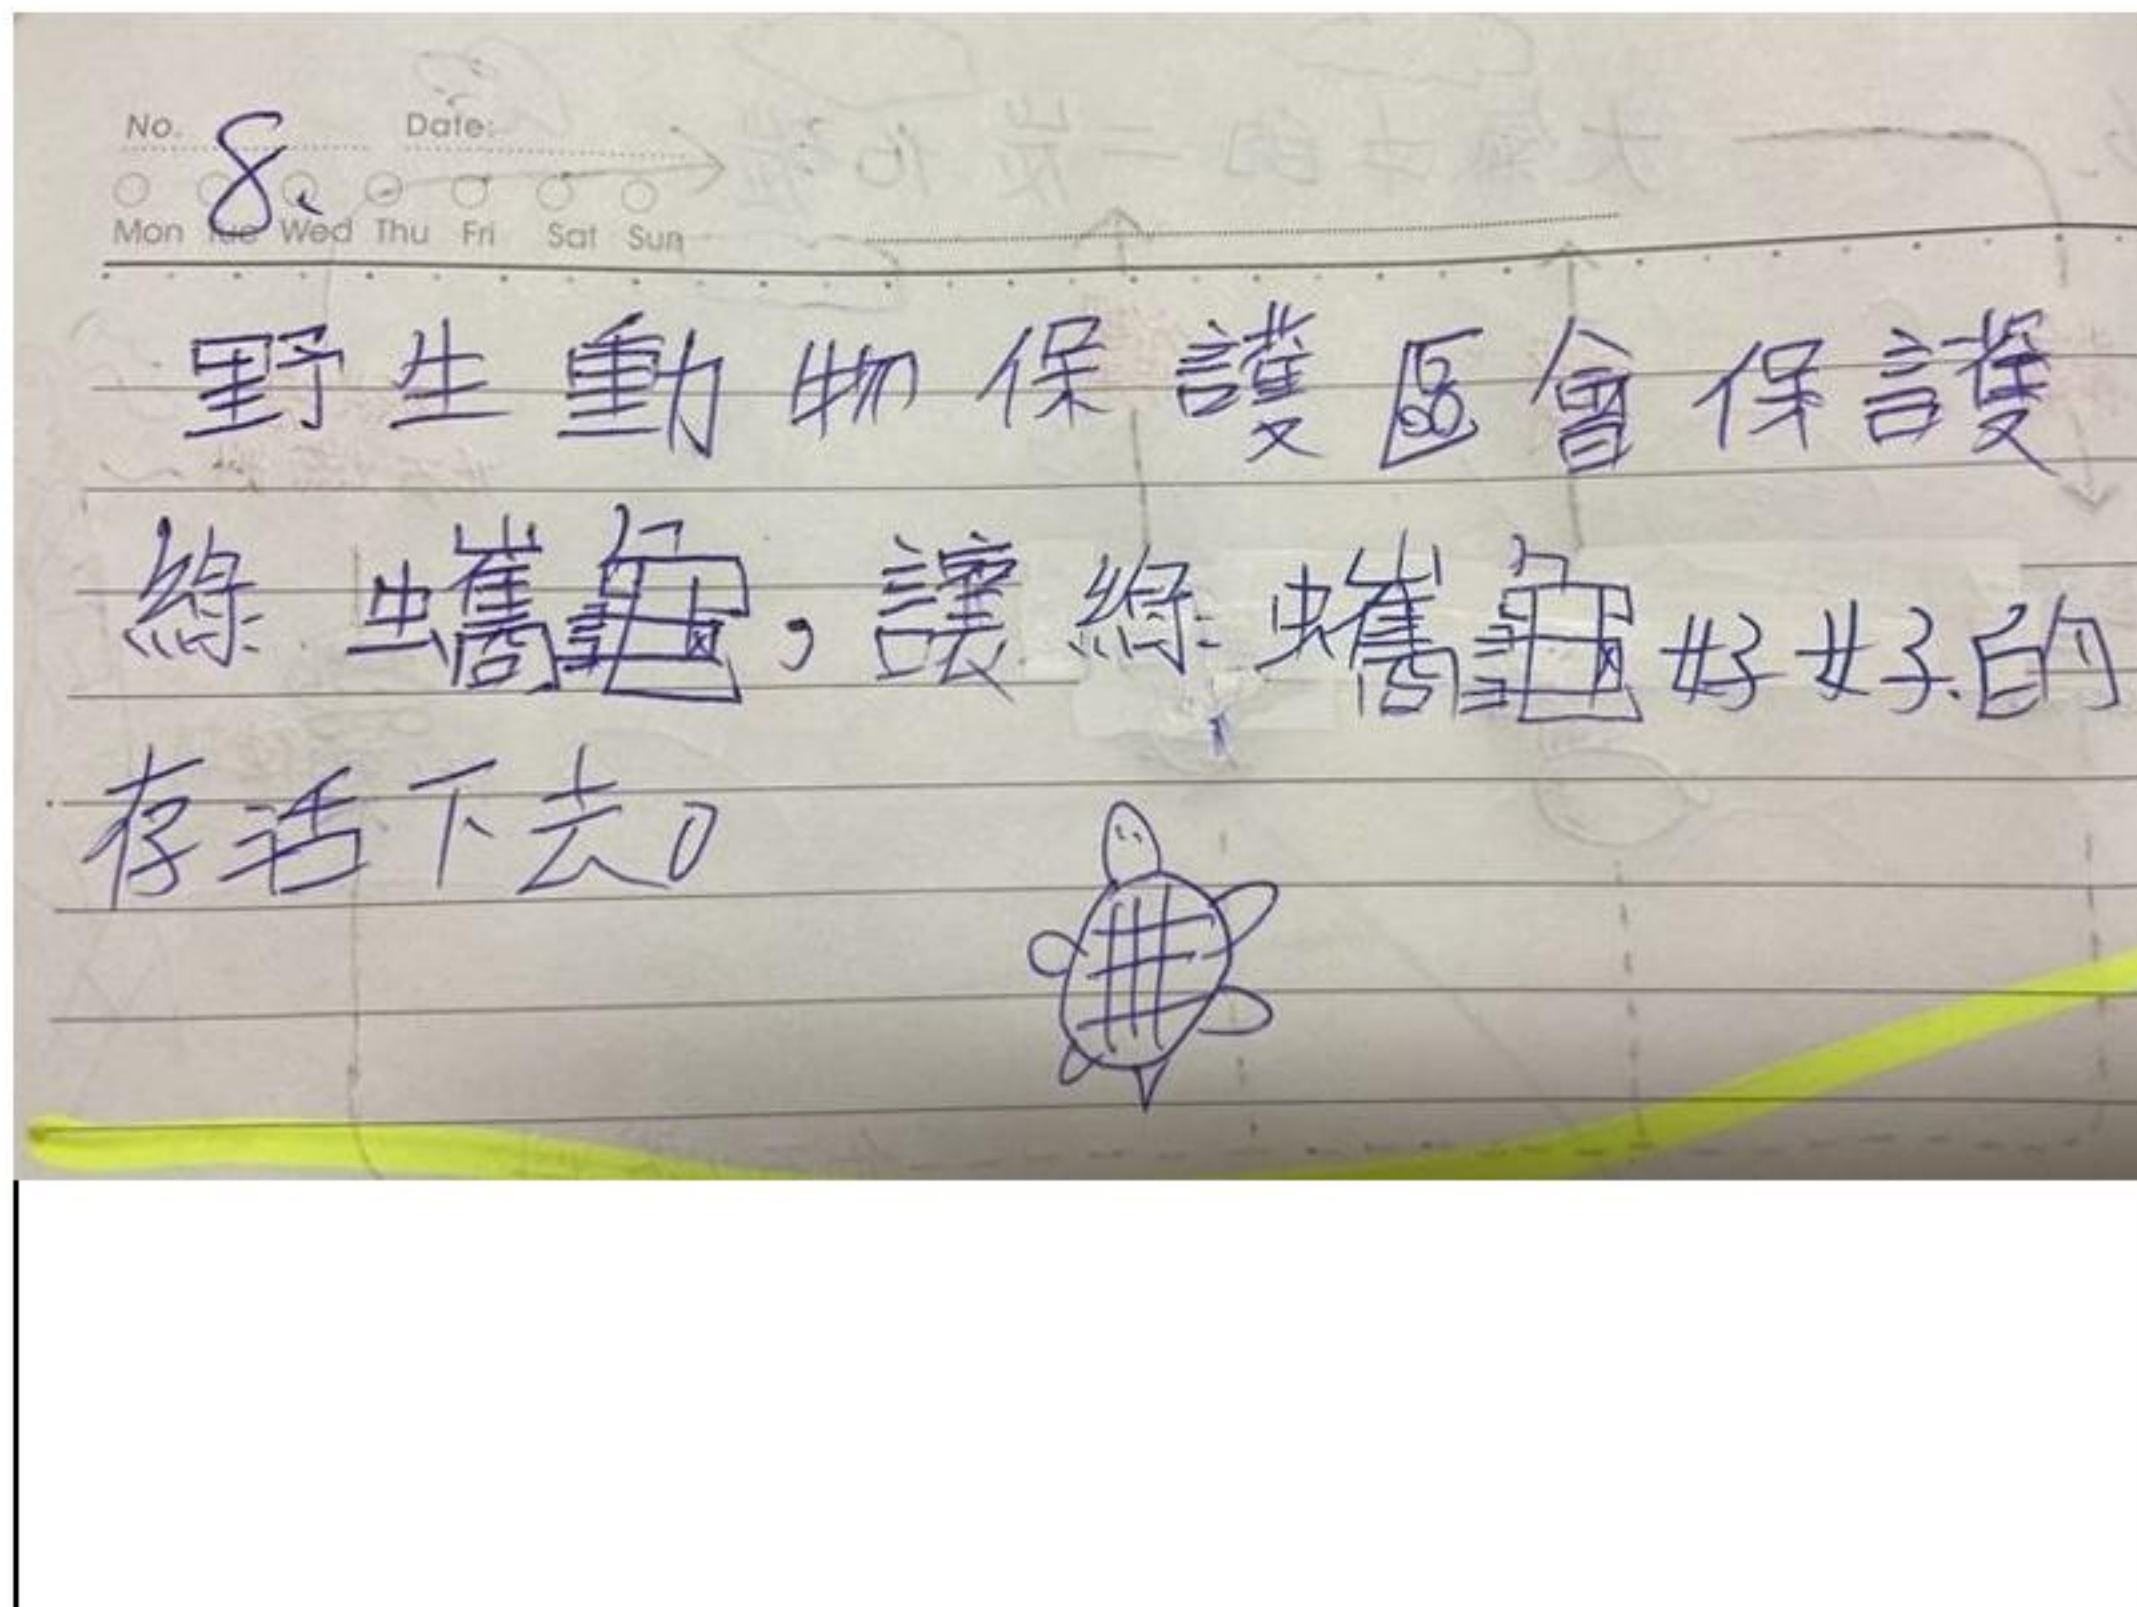 No. 8、 Date:
Mon Tue Wed Thu Fri Sat Sun
野生動物保護區會保護
綠蠵龜，讓綠蠵龜好好的
存活下去。